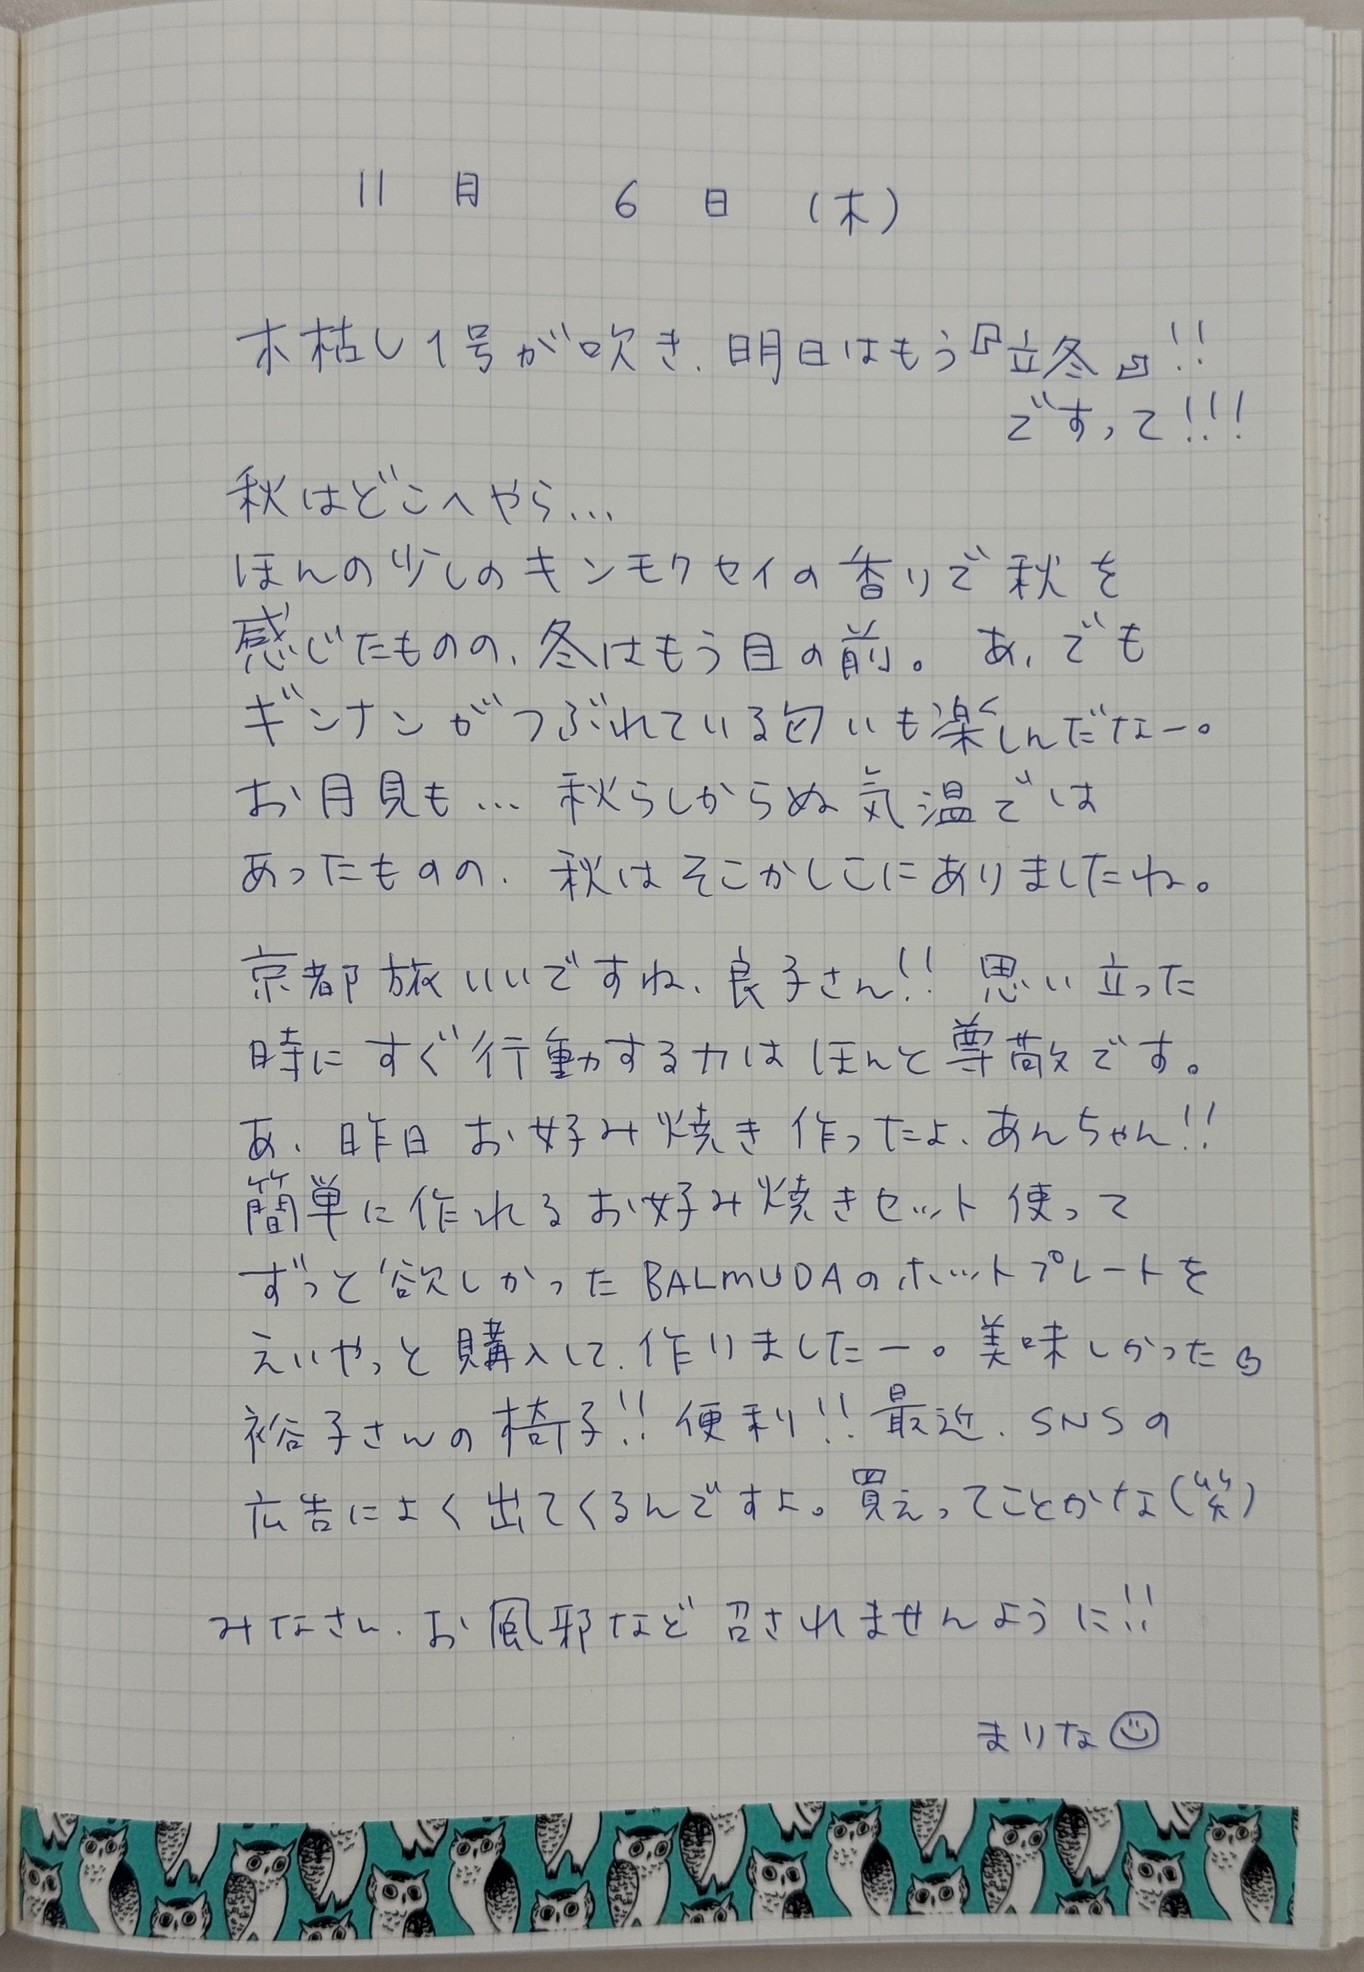 11月 6日 (木)
木枯し1号が吹き、明日はもう『立冬』!!
ですって!!!
秋はどこへやら…
ほんの少しのキンモクセイの香りで秋を
感じたものの、冬はもう目の前。あ、でも
ギンナンがつぶれている匂いも楽しんだなー。
お月見も… 秋らしからぬ気温では
あったものの、秋はそこかしこにありましたね。
京都旅いいですね、良子さん!! 思い立った
時にすぐ行動する力はほんと尊敬です。
あ、昨日お好み焼き作ったよ、あんちゃん!!
簡単に作れるお好み焼きセット使って
ずっと欲しかったBALMUDAのホットプレートを
えいやっと購入して、作りましたー。美味しかった
裕子さんの椅子!! 便利!! 最近、SNSの
広告によく出てくるんですよ。買えってことかな(笑)
みなさん、お風邪など召されませんように!!
まりな